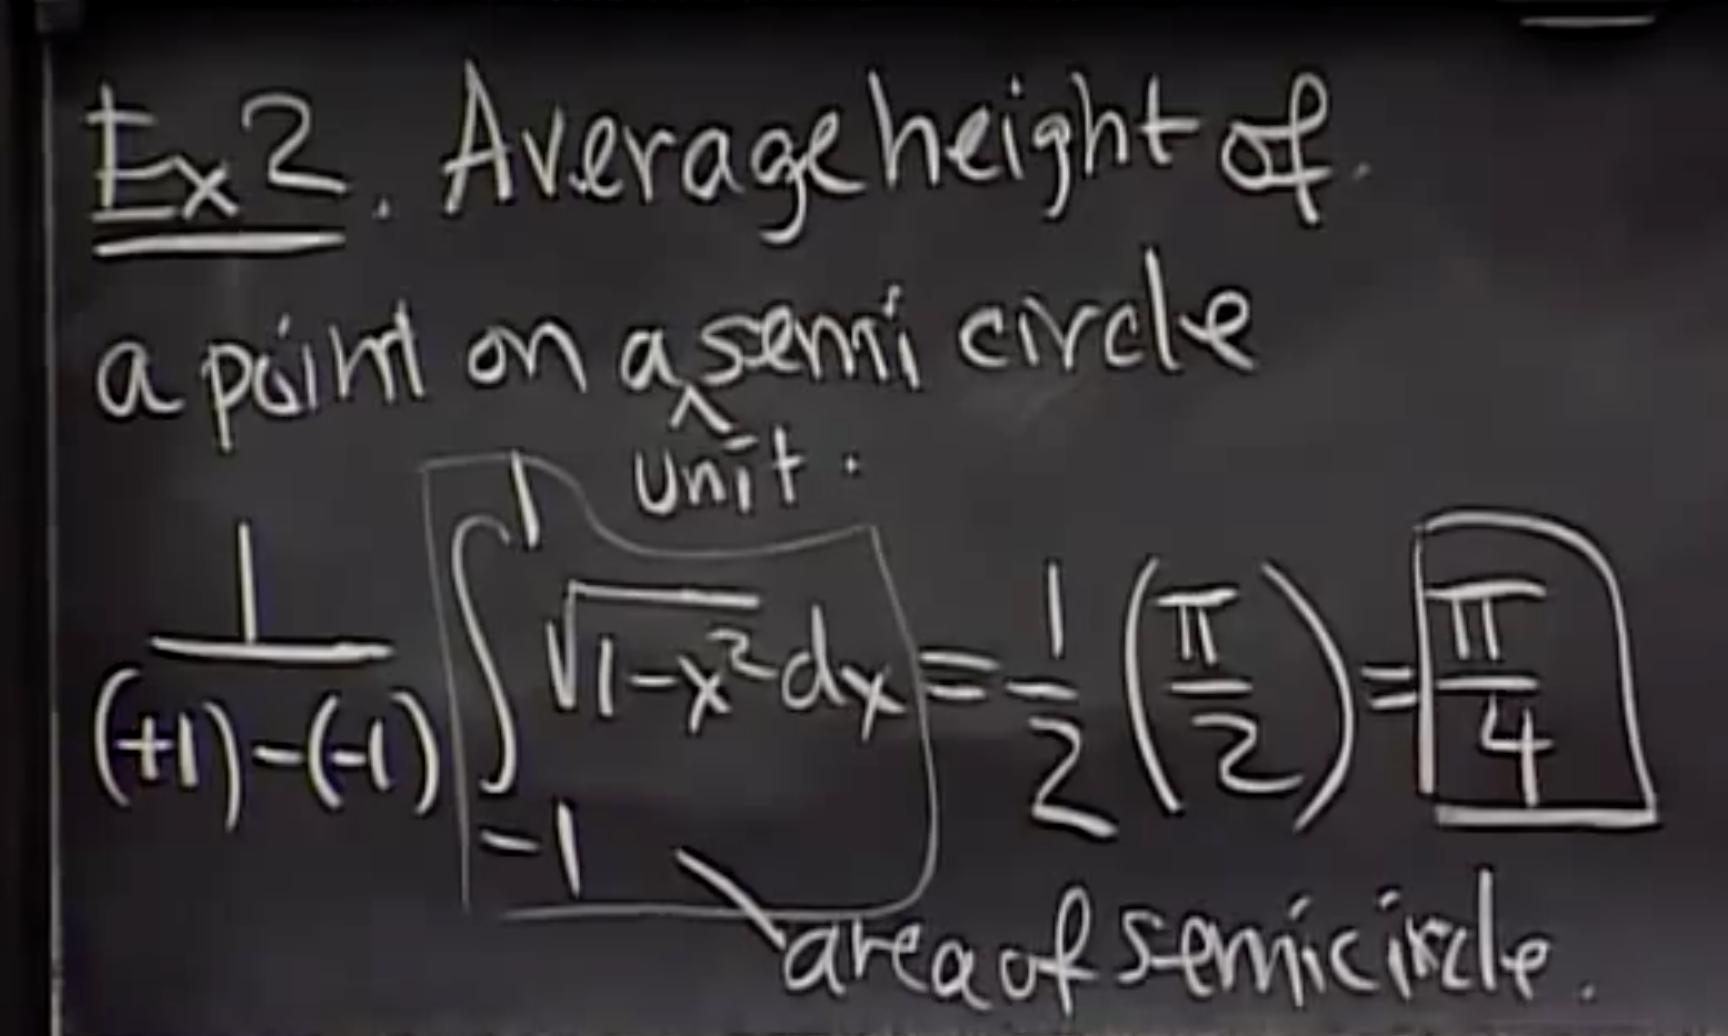 Ex 2. Average height of
a point on a unit semi circle
\frac{1}{(+1)-(-1)} \int_{-1}^{1} \sqrt{1-x^2} dx = \frac{1}{2} \left(\frac{\pi}{2}\right) = \frac{\pi}{4}
area of semicircle.